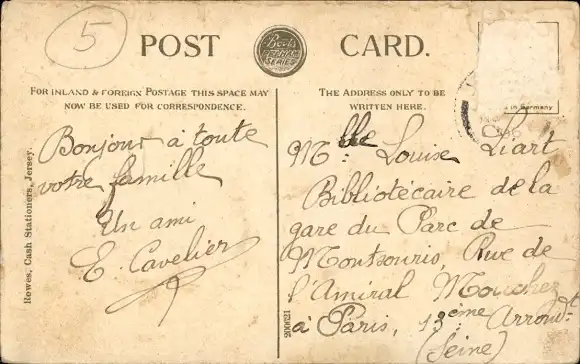 5
POST CARD.
Boots
SERIES
FOR INLAND & FOREIGN POSTAGE THIS SPACE MAY
NOW BE USED FOR CORRESPONDENCE.
THE ADDRESS ONLY TO BE
WRITTEN HERE.
d in Germany
Bonjour à toute
votre famille
Un ami
E. Cavelier
Mlle Louise Liart
Bibliotécaire de la
gare du Parc de
Montsouris, Rue de
l'Amiral Mouchez
à Paris, 13ème Arrondt
(Seine)
Rewes, Cash Stationers, Jersey.
200621